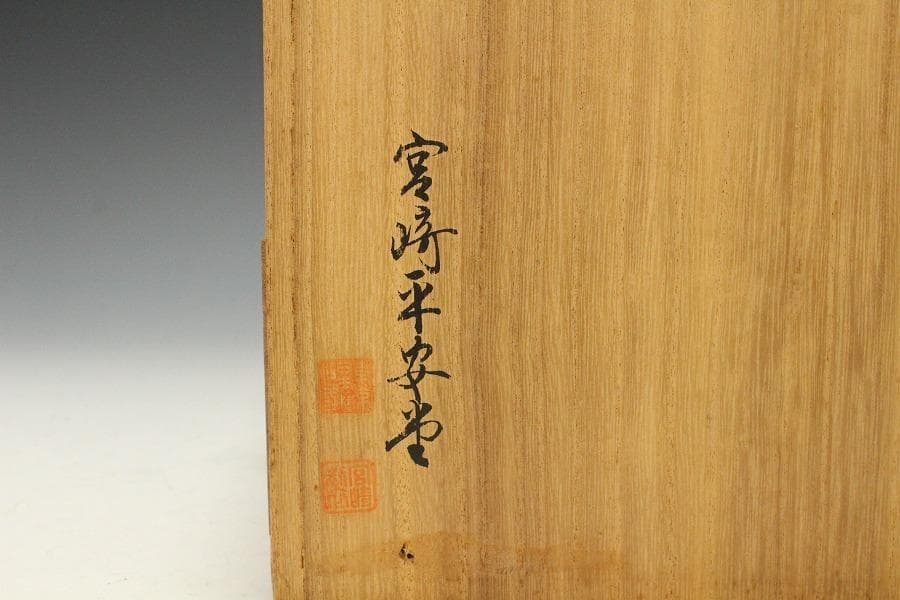 宮崎平安堂